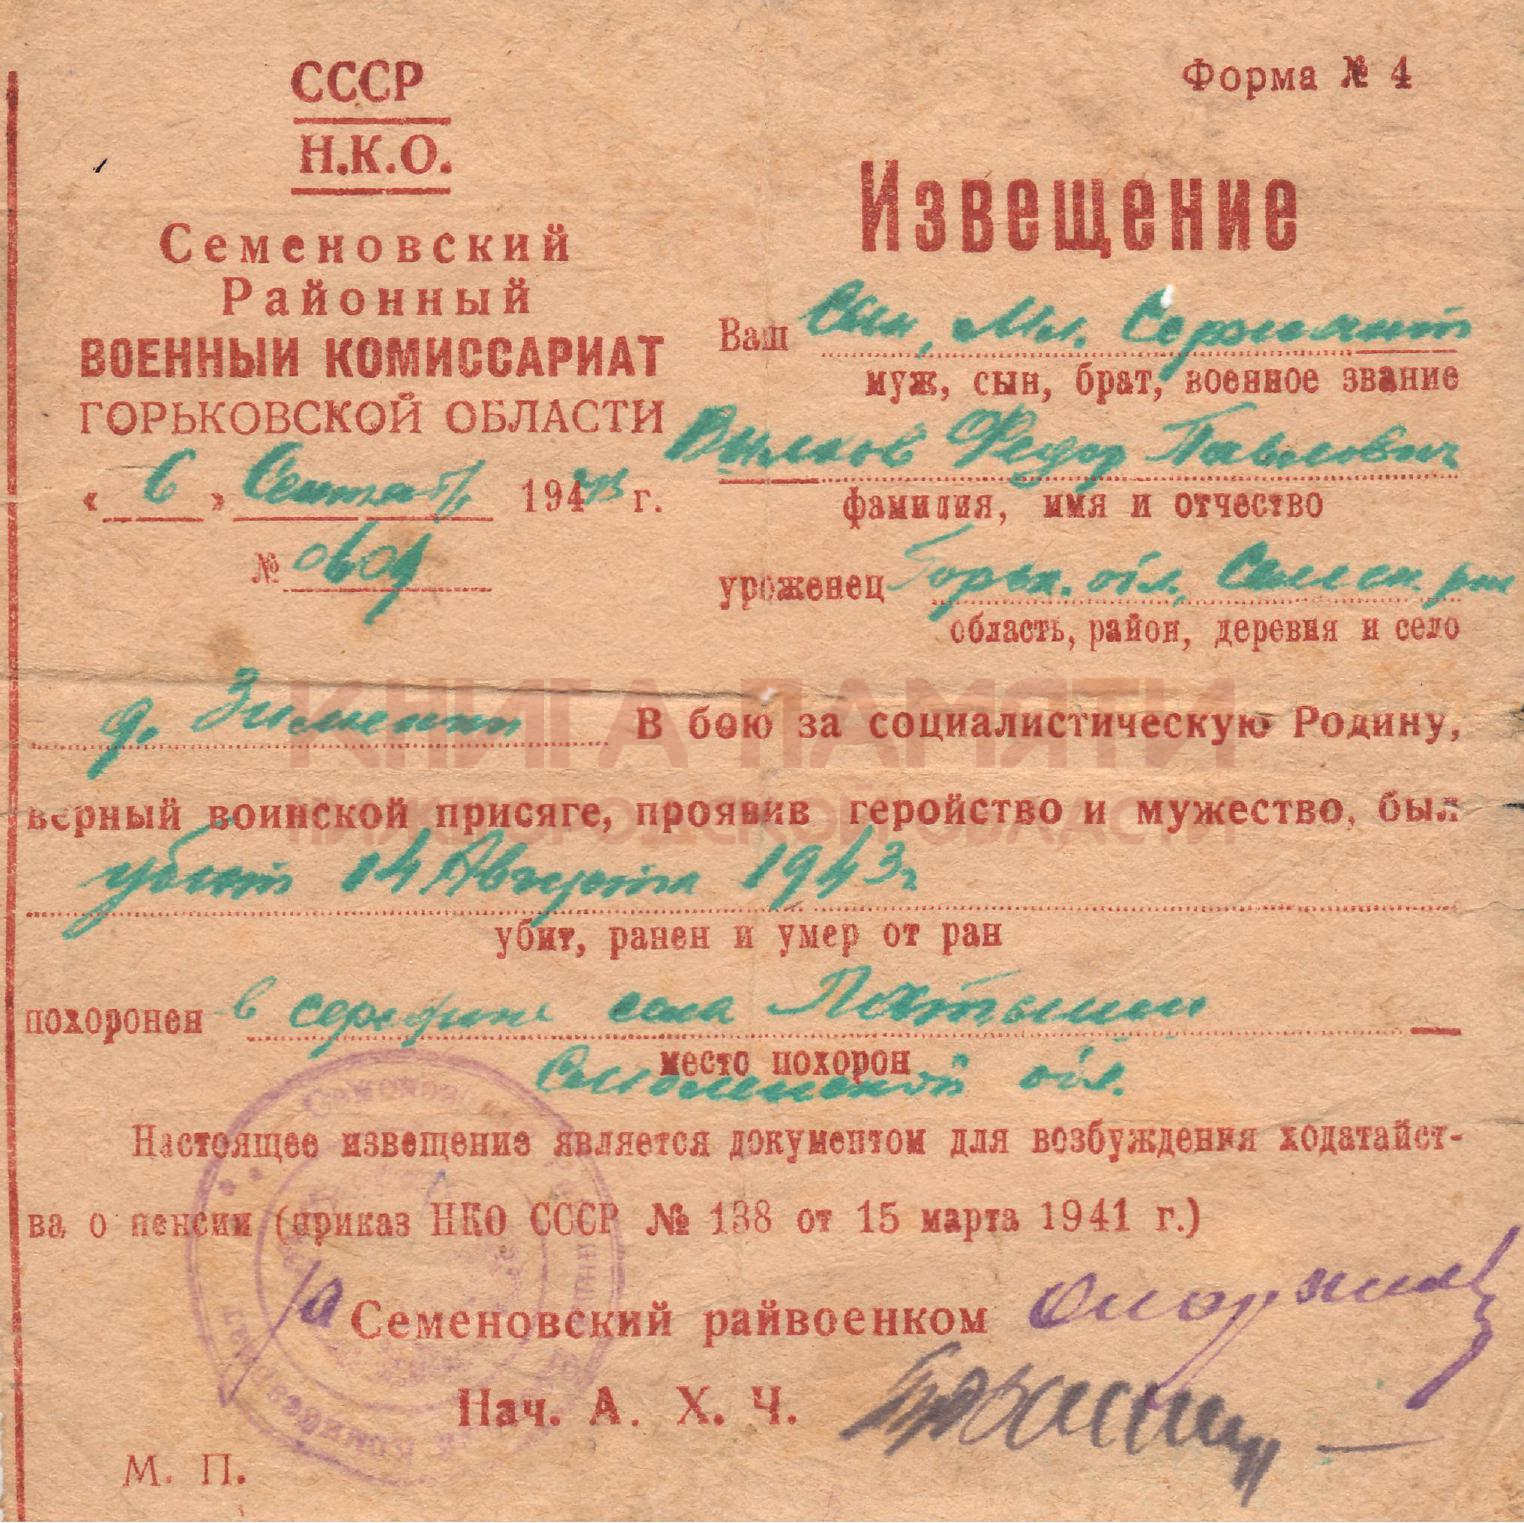 СССР
Н.К.О.
Семеновский
Районный
ВОЕННЫЙ КОМИССАРИАТ
ГОРЬКОВСКОЙ ОБЛАСТИ
« 6 » Сентяб 1943 г.
№
Форма № 4
Извещение
Ваш Сын, Мл. Сержант
муж, сын, брат, военное звание
Вилков Федор Павлович
фамилия, имя и отчество
уроженец Горьк. обл., Семен. рн
область, район, деревня и село
д. Зименки В бою за социалистическую Родину,
верный воинской присяге, проявив геройство и мужество, был
убит 14 Августа 1943 г
убит, ранен и умер от ран
похоронен в середине села
место похорон
Смоленской обл.
Настоящее извещение является документом для возбуждения ходатайст-
ва о пенсии (приказ НКО СССР № 138 от 15 марта 1941 г.)
Семеновский райвоенком
Нач. А. Х. Ч.
М. П.
КНИГА ПАМЯТИ
НИЖЕГОРОДСКОЙ ОБЛАСТИ